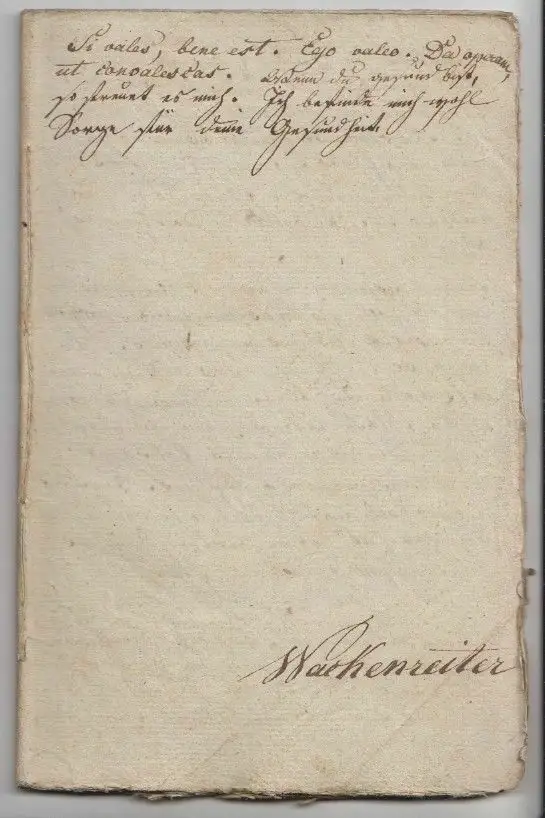 Si vales, bene est. Ego valeo. Da operam,
ut convalescas. Wenn du gesund bist,
so freuet es mich. Ich befinde mich wohl
Sorge für deine Gesundheit.
Wackenreiter